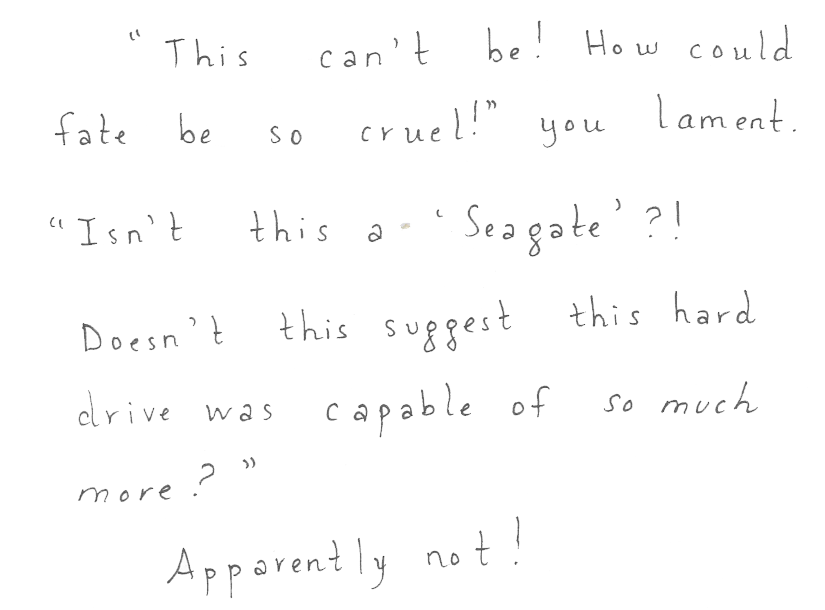 “This can't be! How could
fate be so cruel!” you lament.
“Isn't this a ‘Seagate’?!
Doesn't this suggest this hard
drive was capable of so much
more?”
Apparently not!